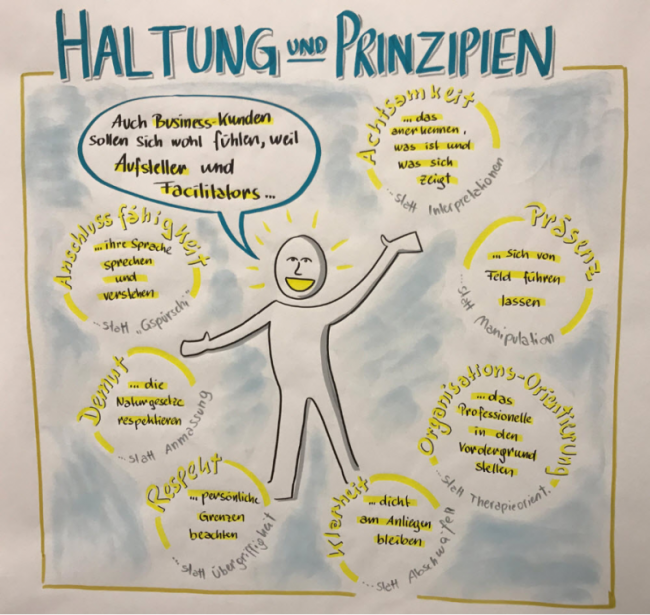 HALTUNG UND PRINZIPIEN
Auch Business-Kunden
sollen sich wohl fühlen, weil
Aufsteller und
Facilitators ...
Achtsamkeit
... das
anerkennen,
was ist und
was sich
zeigt
... statt Interpretationen
Anschlussfähigkeit
... ihre Sprache
sprechen
und
verstehen
... statt „Gspürsch"
Präsenz
... sich von
Feld führen
lassen
... statt Manipulation
Demut
... die
Naturgesetze
respektieren
... statt Anmassung
Organisations-Orientierung
... das
Professionelle
in den
Vordergrund
stellen
... statt Therapieorient.
Respekt
... persönliche
Grenzen
beachten
... statt Übergriffigkeit
Klarheit
... dicht
am Anliegen
bleiben
... statt Abschwafeln